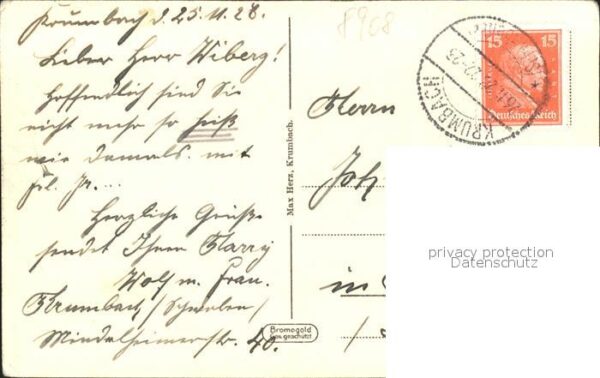 Krumbach d. 25.11.28.
8968
Lieber Herr Wiberg!
Hoffentlich sind Sie
nicht mehr so heiß
wie damals mit
Frl. Fr....
Herzliche Grüße
sendet Ihnen Harry
Wolf m. Frau.
Krumbach / Schwaben /
Mindelheimerstr. 40.
Max Herz, Krumbach.
Bromogold
Ges. geschützt
Herrn
Joh
in
15 15
Deutsches Reich
KRUMBACH
privacy protection
Datenschutz